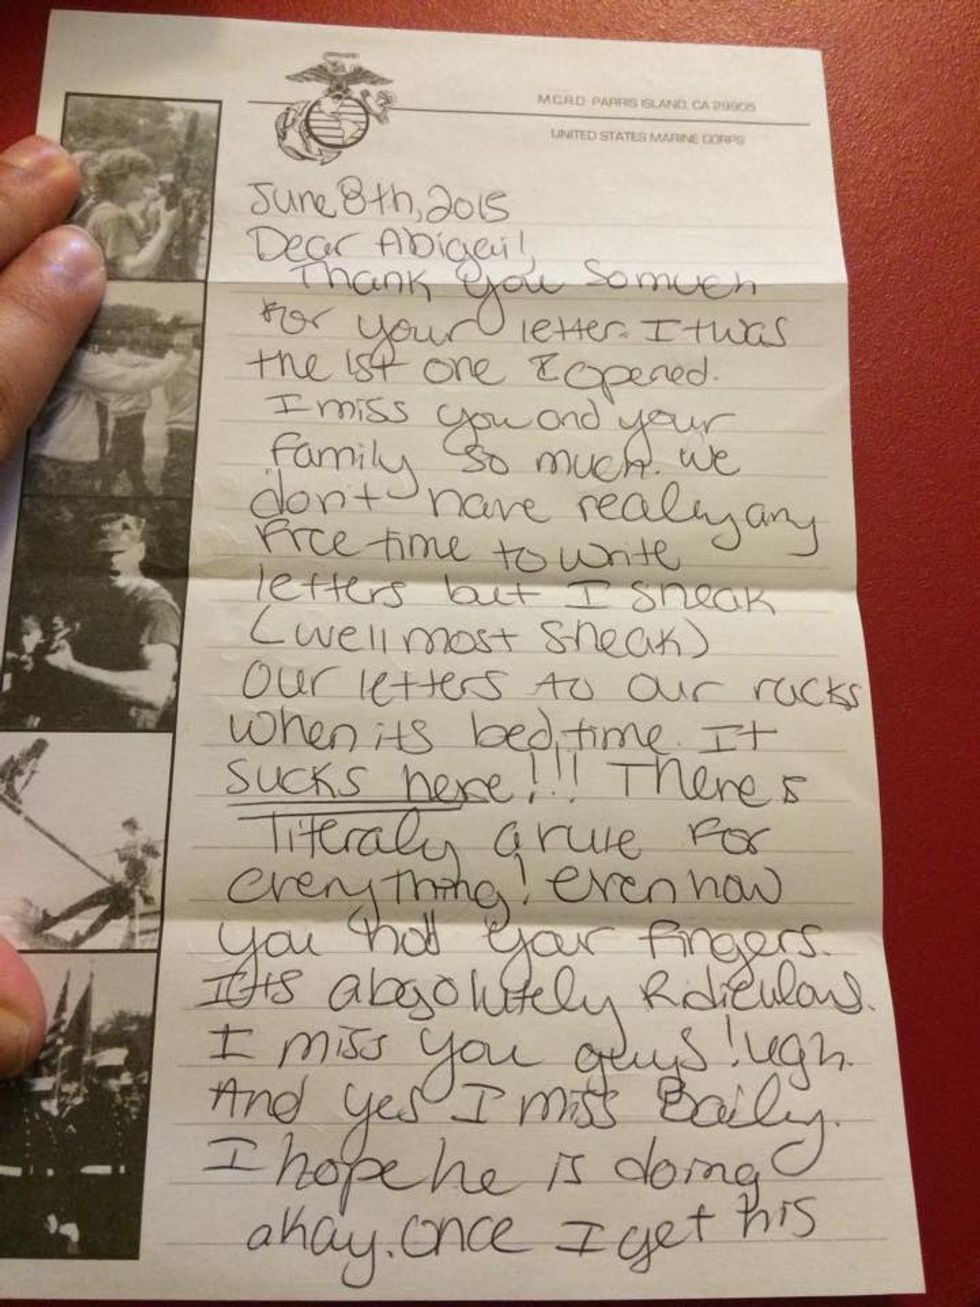 M.C.R.D. PARRIS ISLAND, CA 29905
UNITED STATES MARINE CORPS
June 8th, 2015
Dear Abigail!
Thank you so much
for your letter. It was
the 1st one I opened.
I miss you and your
family so much. We
don't have really any
free time to write
letters but I sneak
(well most sneak)
Our letters to our racks
when its bed time. It
sucks here!!! There is
literaly a rule for
everything! even how
you hold your fingers.
Its absolutely Rdiculous.
I miss you guys! Ugh.
And yes I miss Baily.
I hope he is doing
okay. Once I get his